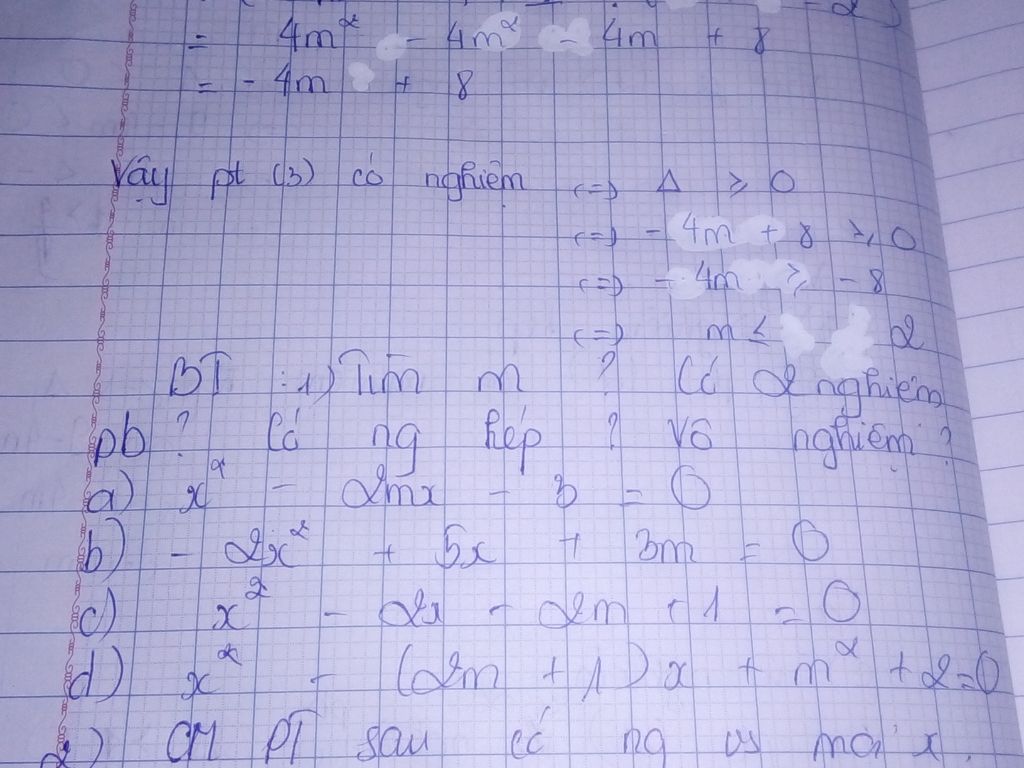 = 4m² - 4m² - 4m + 8
= - 4m + 8
Vậy pt (3) có nghiệm <=> Δ ≥ 0
<=> - 4m + 8 ≥ 0
<=> - 4m ≥ - 8
<=> m ≤ 2
BT : 1) Tìm m ? Có 2 nghiệm
pb ? Có ng kép ? Vô nghiệm ?
a) x² - 2mx - 3 = 0
b) - 2x² + 5x + 3m = 0
c) x² - 2x - 2m + 1 = 0
d) x² - (2m + 1) x + m² + 2 = 0
2) CM PT sau có ng vs mọi x